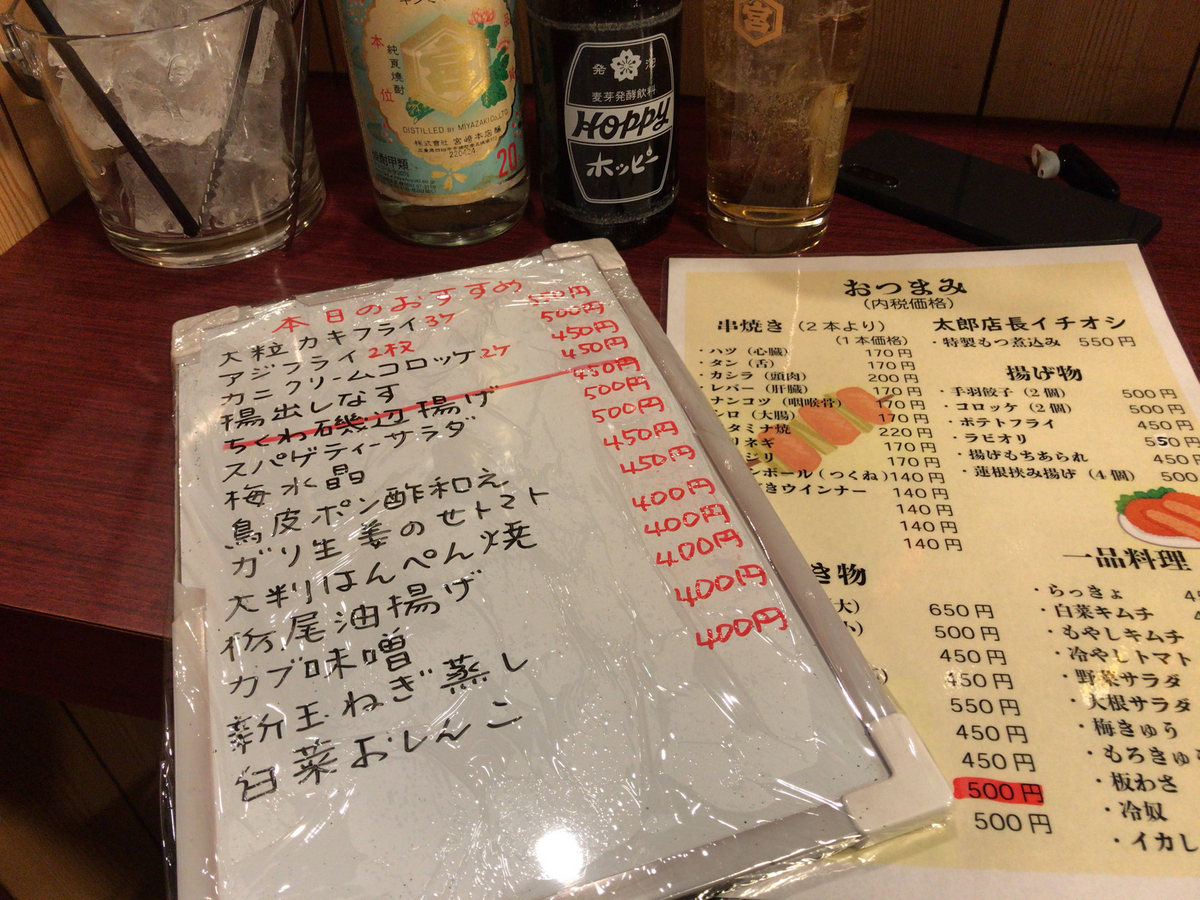 本位
純良焼酎
DISTILLED BY MIYAZAKI CO., LTD.
株式会社 宮崎本店醸
220424
焼酎甲類
20
発泡
麦芽発酵飲料
HOPPY
ホッピー
宮
本日のおすすめ
大粒カキフライ3ケ 550円
アジフライ2枚 500円
カニクリームコロッケ2ケ 450円
揚出しなす 450円
ちくわ磯辺揚げ 450円
スパゲティーサラダ 500円
梅水晶 500円
鳥皮ポン酢和え 450円
ガリ生姜のせトマト 450円
大判はんぺん焼 400円
栃尾油揚げ 400円
カブ味噌 400円
新玉ねぎ蒸し 400円
白菜おしんこ 400円
おつまみ
(内税価格)
串焼き(2本より)
(1本価格)
・ハツ(心臓) 170円
・タン(舌) 170円
・カシラ(頭肉) 200円
・レバー(肝臓) 170円
ナンコツ(咽喉骨) 170円
シロ(大腸)
タミナ焼 220円
リネギ 170円
ジリ 170円
ンボール(つくね) 140円
きウインナー 140円
140円
140円
140円
き物
大) 650円
500円
450円
450円
550円
450円
450円
500円
500円
太郎店長イチオシ
・特製もつ煮込み 550円
揚げ物
・手羽餃子(2個) 500円
・コロッケ(2個) 500円
・ポテトフライ 450円
・ラビオリ 550円
・揚げもちあられ 450円
・蓮根挟み揚げ(4個) 500
一品料理
・らっきょ
・白菜キムチ
・もやしキムチ
・冷やしトマト
・野菜サラダ
・大根サラダ
・梅きゅう
・もろきゅう
・板わさ
・冷奴
・イカし